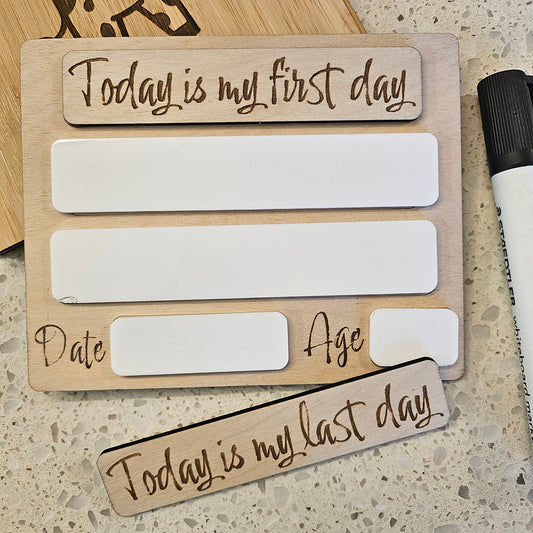 Today is my first day
Date
Age
Today is my last day
STAEDTLER
whiteboard